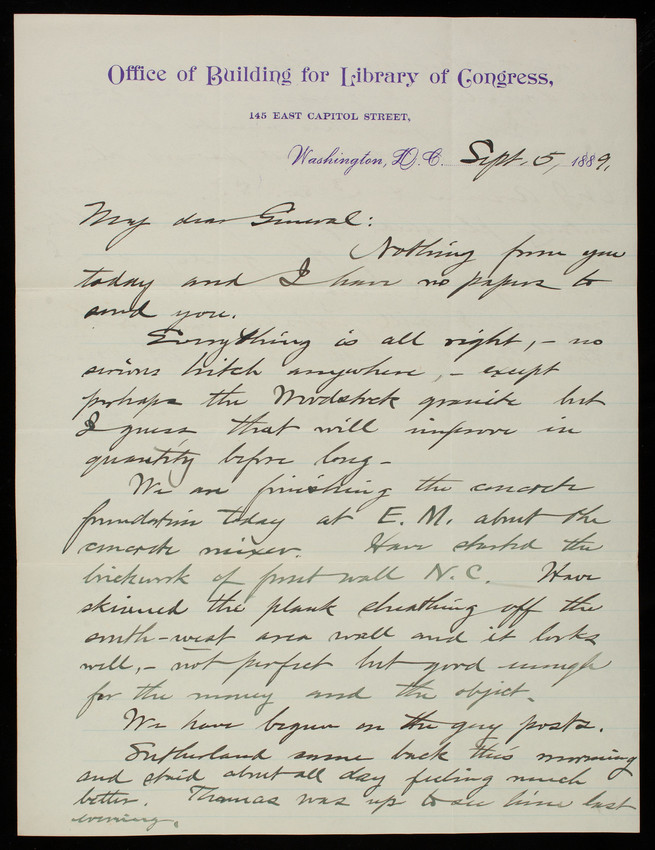 Office of Building for Library of Congress,
145 EAST CAPITOL STREET,
Washington, D. C. Sept. 5, 1889.
My dear General:
Nothing from you
today and I have no papers to
send you.
Everything is all right, - no
serious hitch anywhere, - except
perhaps the Woodstock granite but
I guess that will improve in
quantity before long -
We are finishing the concrete
foundation today at E. M. about the
concrete mixer. Have started the
brickwork of front wall N. C. Have
skinned the plank sheathing off the
south-west area wall and it looks
well, - not perfect but good enough
for the money and the object.
We have begun on the guy posts.
Sutherland came back this morning
and staid about all day feeling much
better. Thomas was up to see him last
evening.